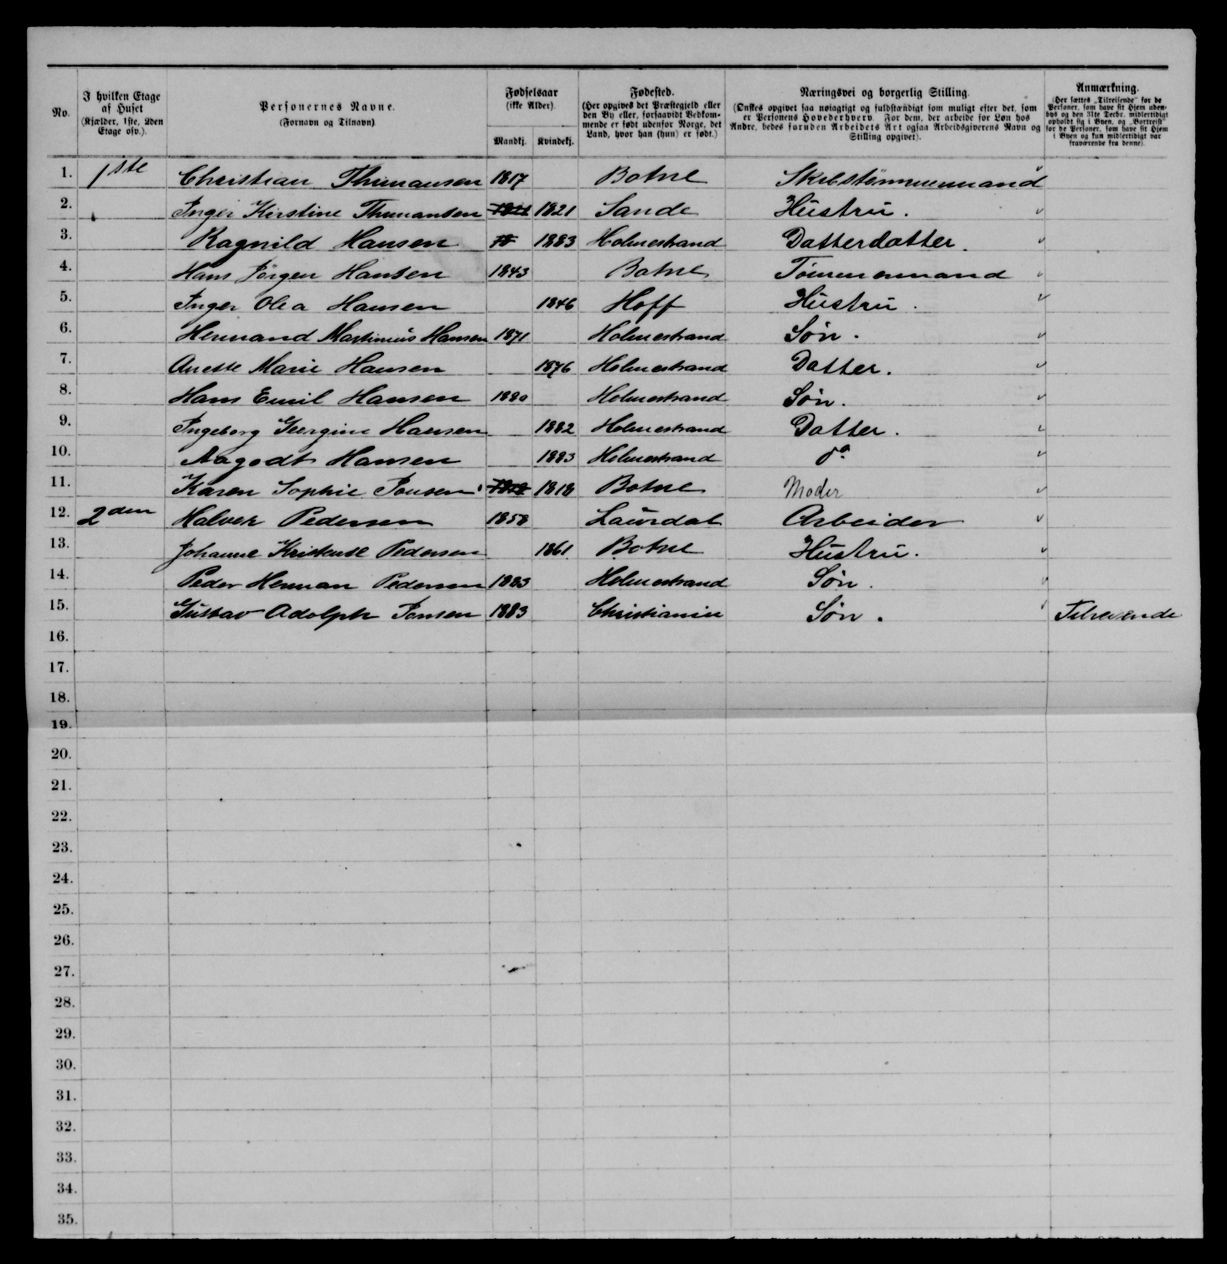 No.
I hvilken Etage af Huset (Kjælder, 1ste, 2den Etage osv.).
Personernes Navne. (Fornavn og Tilnavn).
Fødselsaar (ikke Alder).
Mandkj. Kvindekj.
Fødested. (Her opgives det Præstegjeld eller den By eller, forsaavidt Vedkommende er født udenfor Norge, det Land, hvor han (hun) er født.)
Næringsvei og borgerlig Stilling. (Ønskes opgivet saa nøiagtigt og fuldstændigt som muligt efter det, som er Personens Hovederhverv. For dem, der arbeide for Løn hos Andre, bedes foruden Arbeidets Art ogsaa Arbeidsgiverens Navn og Stilling opgivet).
Anmærkning. (Her sættes „Tilreisende" for de Personer, som have sit Hjem udenbys og den 31te Decbr. midlertidigt opholdt sig i Byen, og „Bortreist" for de Personer, som have sit Hjem i Byen og kun midlertidigt var fraværende fra denne).
1. 1ste Christian Thimansen 1817 Botne Skibstømmermand
2. Inger Kirstine Thimansen 1821 Sande Hustru.
3. Ragnild Hansen 1883 Holmestrand Datterdatter.
4. Hans Jörgen Hansen 1843 Botne Tömmermand
5. Inger Olea Hansen 1846 Hoff Hustru.
6. Hermand Martinius Hansen 1871 Holmestrand Søn.
7. Anette Marie Hansen 1876 Holmestrand Datter.
8. Hans Emil Hansen 1880 Holmestrand Søn.
9. Ingeborg Georgine Hansen 1882 Holmestrand Datter.
10. Aagodt Hansen 1883 Holmestrand do
11. Karen Sophie Jonsen 1818 Botne Moder
12. 2den Halvor Pedersen 1858 Laurdal Arbeider
13. Johanne Kristense Pedersen 1861 Botne Hustru.
14. Peder Herman Pedersen 1883 Holmestrand Søn.
15. Gustav Adolph Jonsen 1883 Christiania Søn. Tilreisende
16.
17.
18.
19.
20.
21.
22.
23.
24.
25.
26.
27.
28.
29.
30.
31.
32.
33.
34.
35.